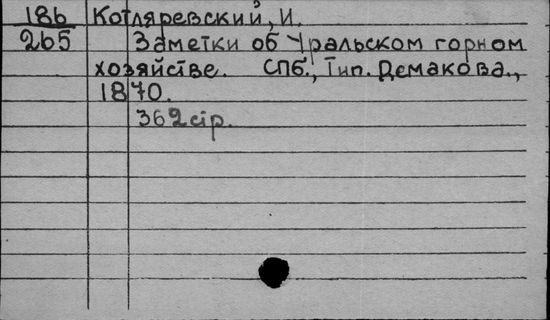 186 Котляревский, И.
265 Заметки об Уральском горном
хозяйстве. СПб., Тип. Демакова.,
1870.
362 стр.